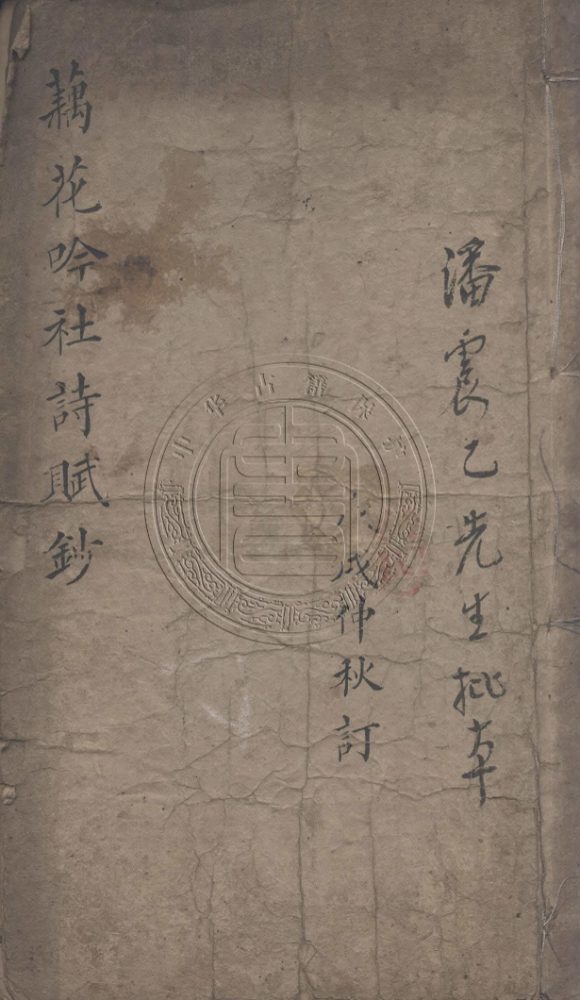 潘震乙先生批夲
戌仲秋訂
藕花吟社詩賦鈔
中华古籍保护